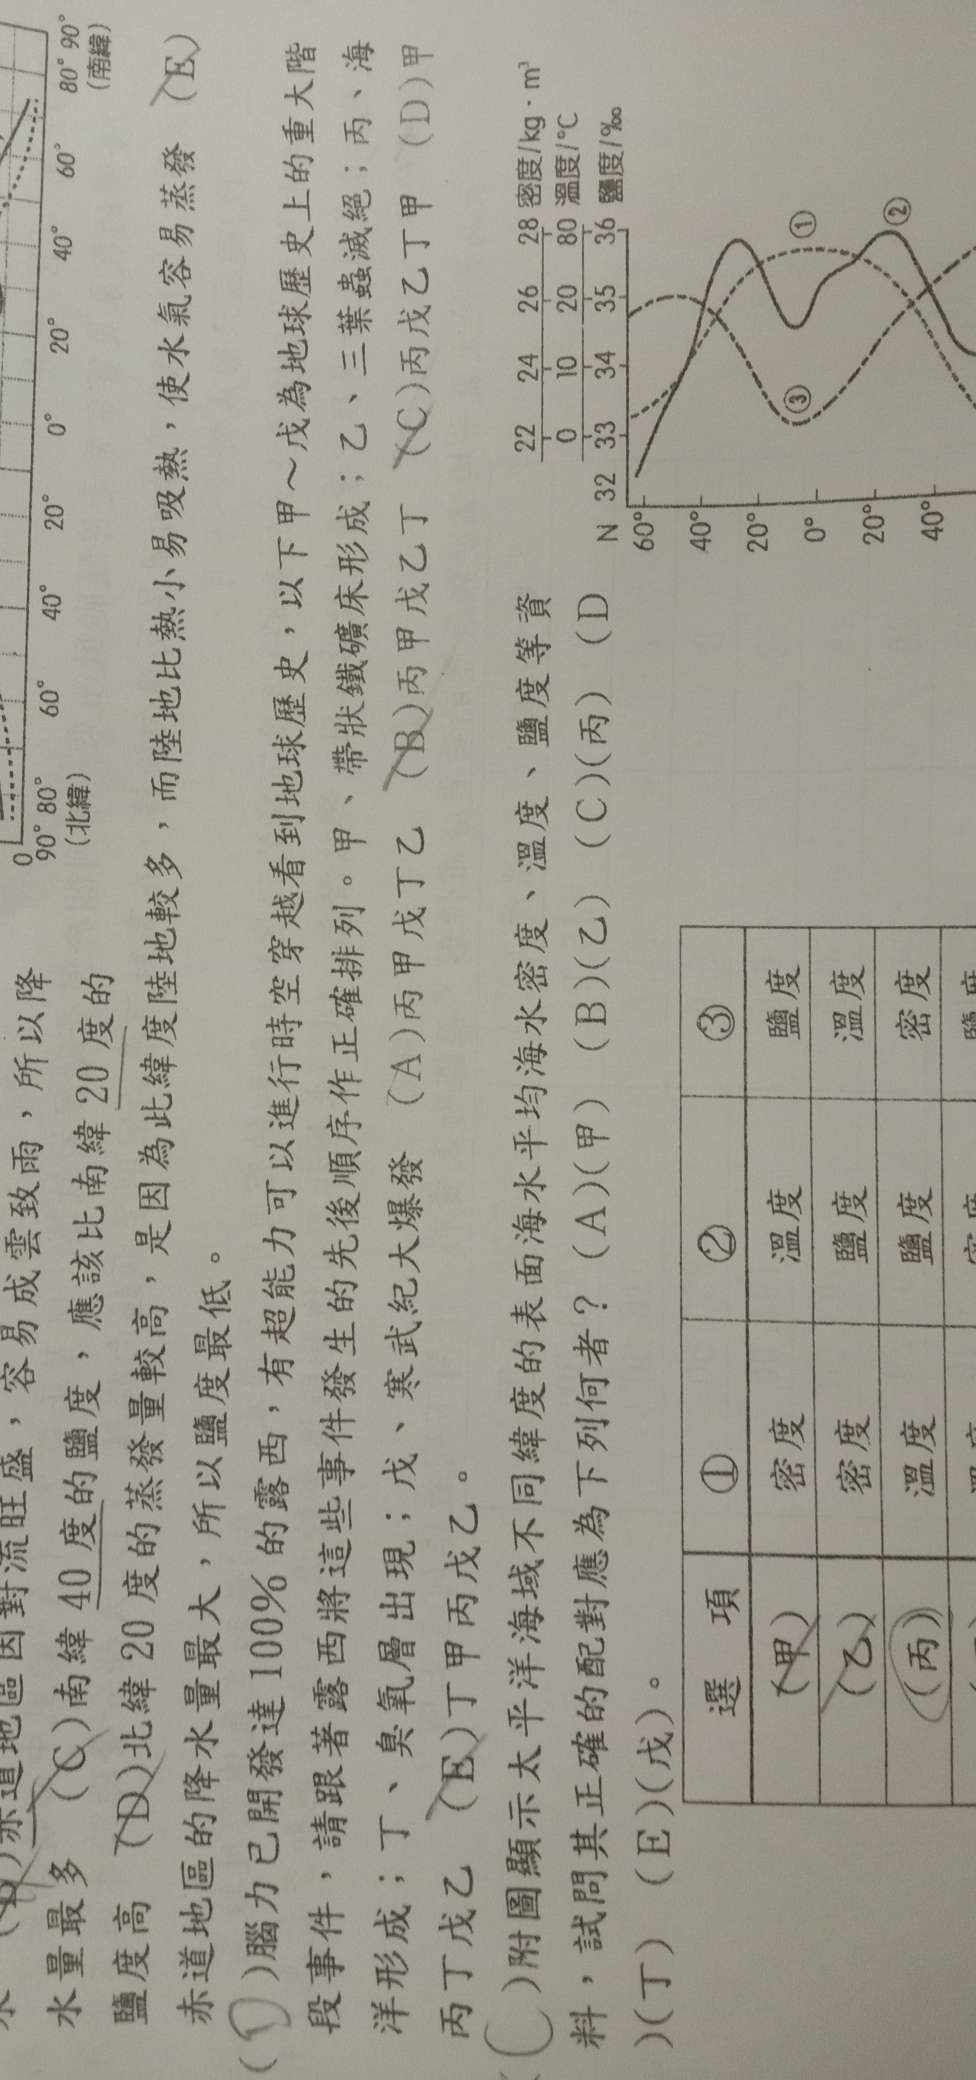 0
90° 80° 60° 40° 20° 0° 20° 40° 60° 80° 90°
(北緯) (南緯)
)赤道地區因對流旺盛,容易成雲致雨,所以降
水量最多 (C)南緯 40 度的鹽度,應該比南緯 20 度的
鹽度高 (D)北緯 20 度的蒸發量較高,是因為此緯度陸地較多,而陸地比熱小易吸熱,使水氣容易蒸發 (E)
赤道地區的降水量最大,所以鹽度最低。
(D)腦力已開發達 100% 的露西,有超能力可以進行時空穿越看到地球歷史,以下甲~戊為地球歷史上的重大階
段事件,請跟著露西將這些事件發生的先後順序作正確排列。甲、帶狀鐵礦床形成;乙、三葉蟲滅絕;丙、海
洋形成;丁、臭氧層出現;戊、寒武紀大爆發 (A)丙甲戊丁乙 (B)丙甲戊乙丁 (C)丙戊乙丁甲 (D)甲
丙丁戊乙 (E)丁甲丙戊乙。
(C)附圖顯示太平洋海域不同緯度的表面海水平均海水密度、溫度、鹽度等資
料,試問其正確的配對應為下列何者? (A)(甲) (B)(乙) (C)(丙) (D
)(丁) (E)(戊)。
選項 ① ② ③
(甲) 密度 溫度 鹽度
(乙) 密度 鹽度 溫度
(丙) 溫度 鹽度 密度
22 24 26 28 密度/kg·m³
0 10 20 80 溫度/°C
32 33 34 35 36 鹽度/‰
N
60°
40°
20°
0°
20°
40°
①
②
③